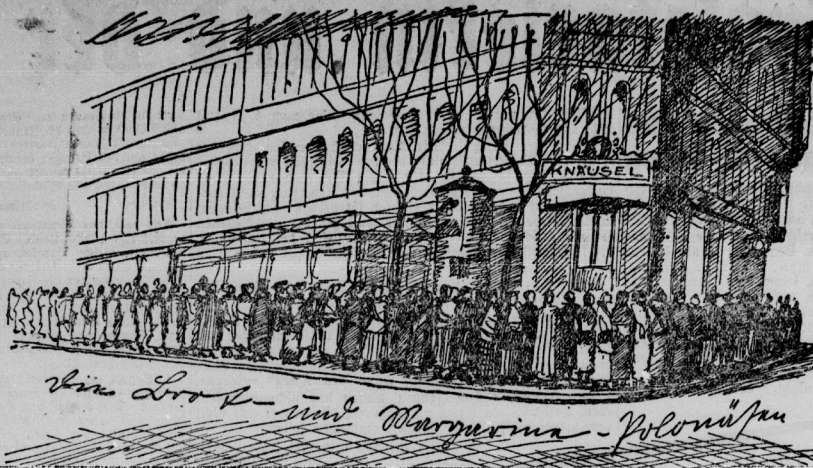 KNÄUSEL
Die Brot- und Margarine-Polonäsen